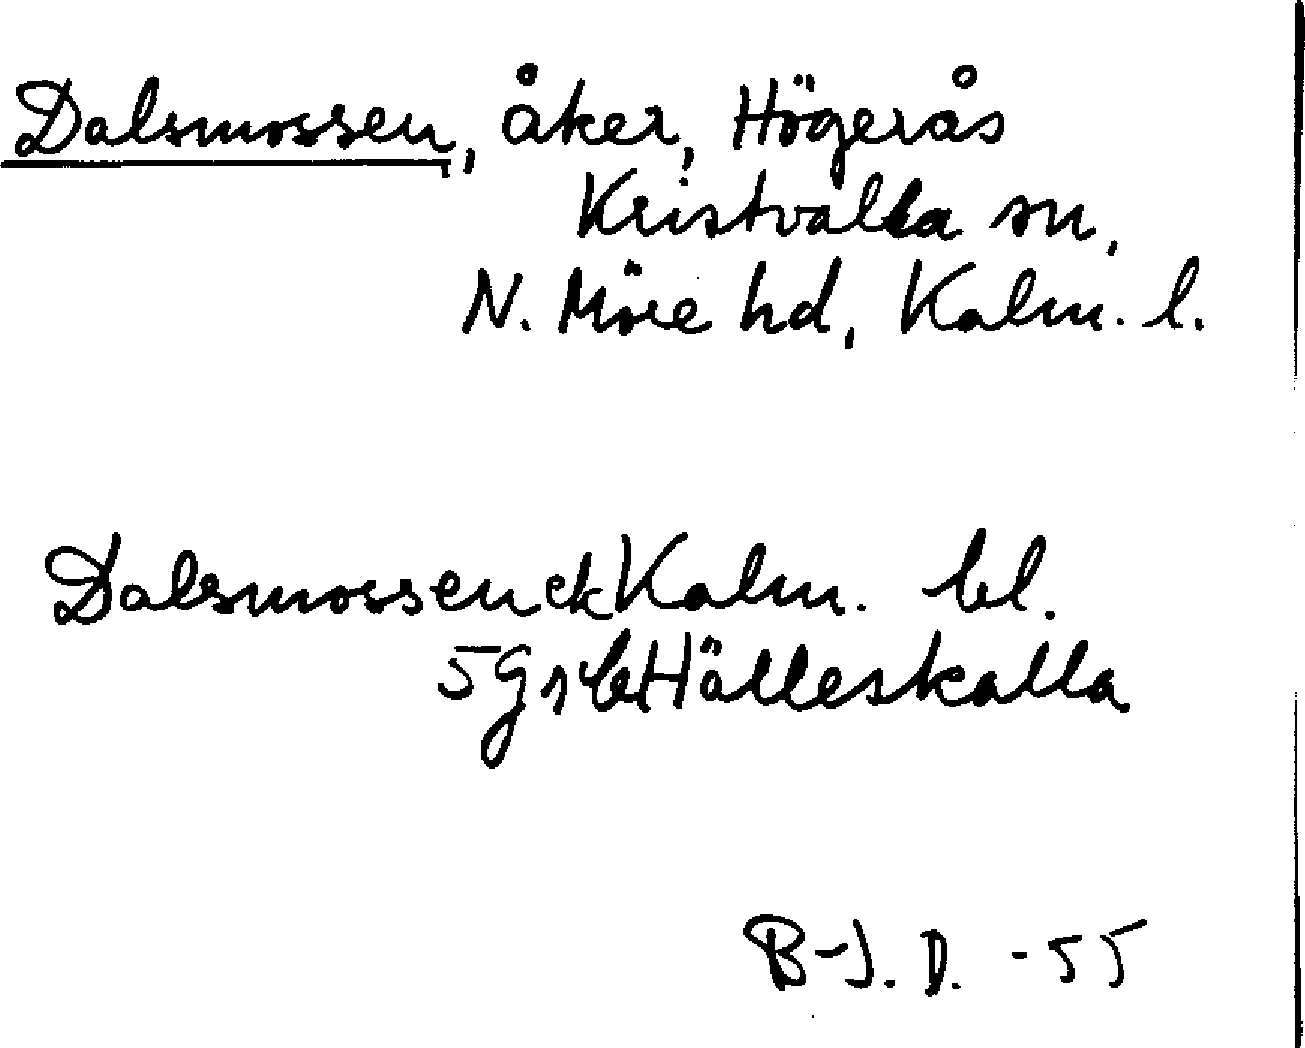 Dalsmossen, åker, Högerås
Kristvalla sn,
N. Möre hd, Kalm. l.
Dalsmossen ek Kalm. bl.
5 g Hälleskalla
B-J. D. -55